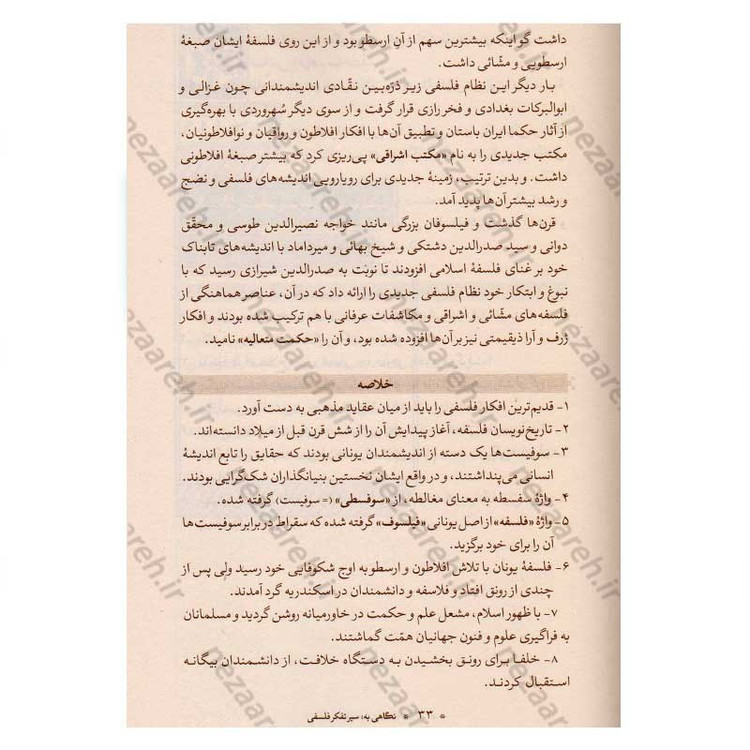 داشت گو اینکه بیشترین سهم از آنِ ارسطو بود و از این روی فلسفهٔ ایشان صبغهٔ
ارسطویی و مشّائی داشت.
بار دیگر این نظام فلسفی زیر ذرّه‌بین نقّادی اندیشمندانی چون غزالی و
ابوالبرکات بغدادی و فخر رازی قرار گرفت و از سوی دیگر سُهروردی با بهره‌گیری
از آثار حکما ایران باستان و تطبیق آن‌ها با افکار افلاطون و رواقیان و نوافلاطونیان،
مکتب جدیدی را به نام «مکتب اشراقی» پی‌ریزی کرد که بیشتر صبغهٔ افلاطونی
داشت. و بدین ترتیب، زمینهٔ جدیدی برای رویارویی اندیشه‌های فلسفی و نضج
و رشد بیشتر آن‌ها پدید آمد.
قرن‌ها گذشت و فیلسوفان بزرگی مانند خواجه نصیرالدین طوسی و محقّق
دوانی و سید صدرالدین دشتکی و شیخ بهائی و میرداماد با اندیشه‌های تابناک
خود بر غنای فلسفهٔ اسلامی افزودند تا نوبت به صدرالدین شیرازی رسید که با
نبوغ و ابتکار خود نظام فلسفی جدیدی را ارائه داد که در آن، عناصر هماهنگی از
فلسفه‌های مشّائی و اشراقی و مکاشفات عرفانی با هم ترکیب شده بودند و افکار
ژرف و آرا ذیقیمتی نیز بر آن‌ها افزوده شده بود، و آن را «حکمت متعالیه» نامید.
خلاصه
۱- قدیم‌ترین افکار فلسفی را باید از میان عقاید مذهبی به دست آورد.
۲- تاریخ‌نویسان فلسفه، آغاز پیدایش آن را از شش قرن قبل از میلاد دانسته‌اند.
۳- سوفیست‌ها یک دسته از اندیشمندان یونانی بودند که حقایق را تابع اندیشهٔ
انسانی می‌پنداشتند، و در واقع ایشان نخستین بنیانگذاران شک‌گرایی بودند.
۴- واژهٔ سفسطه به معنای مغالطه، از «سوفسطی» (= سوفیست) گرفته شده.
۵- واژهٔ «فلسفه» از اصل یونانی «فیلسوف» گرفته شده که سقراط در برابر سوفیست‌ها
آن را برای خود برگزید.
۶- فلسفهٔ یونان با تلاش افلاطون و ارسطو به اوج شکوفایی خود رسید ولی پس از
چندی از رونق افتاد و فلاسفه و دانشمندان در اسکندریه گرد آمدند.
۷- با ظهور اسلام، مشعل علم و حکمت در خاورمیانه روشن گردید و مسلمانان
به فراگیری علوم و فنون جهانیان همّت گماشتند.
۸- خلفا برای رونق بخشیدن به دستگاه خلافت، از دانشمندان بیگانه
استقبال کردند.
* ۳۳ * نگاهی به: سیر تفکر فلسفی
nezaareh.ir